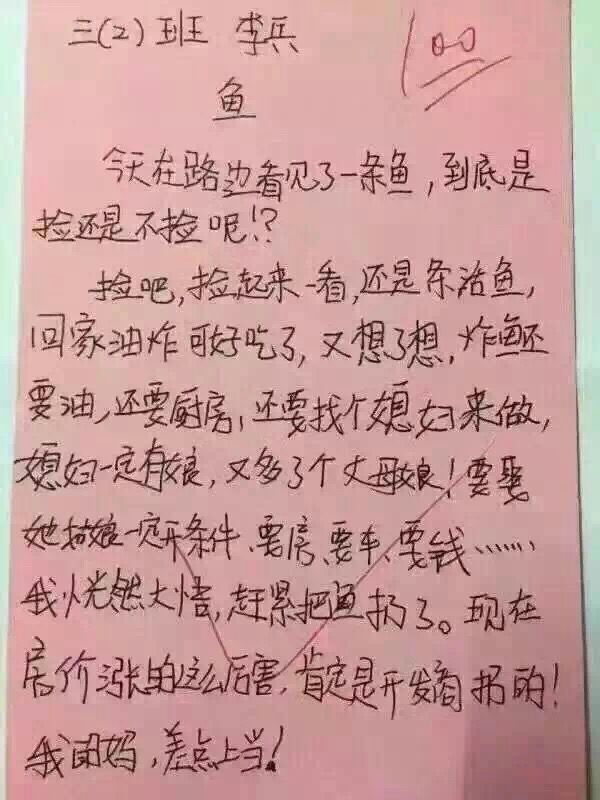 三(2)班 李兵
100
鱼
今天在路边看见了一条鱼，到底是
捡还是不捡呢！？
捡吧，捡起来一看，还是条活鱼，
回家油炸可好吃了，又想了想，炸鱼还
要油，还要厨房，还要找个媳妇来做，
媳妇一定有娘，又多了个丈母娘！要娶
她娘一定开条件、要房、要车、要钱……
我恍然大悟，赶紧把鱼扔了。现在
房价涨的这么厉害，肯定是开发商扔的！
我的妈，差点上当！